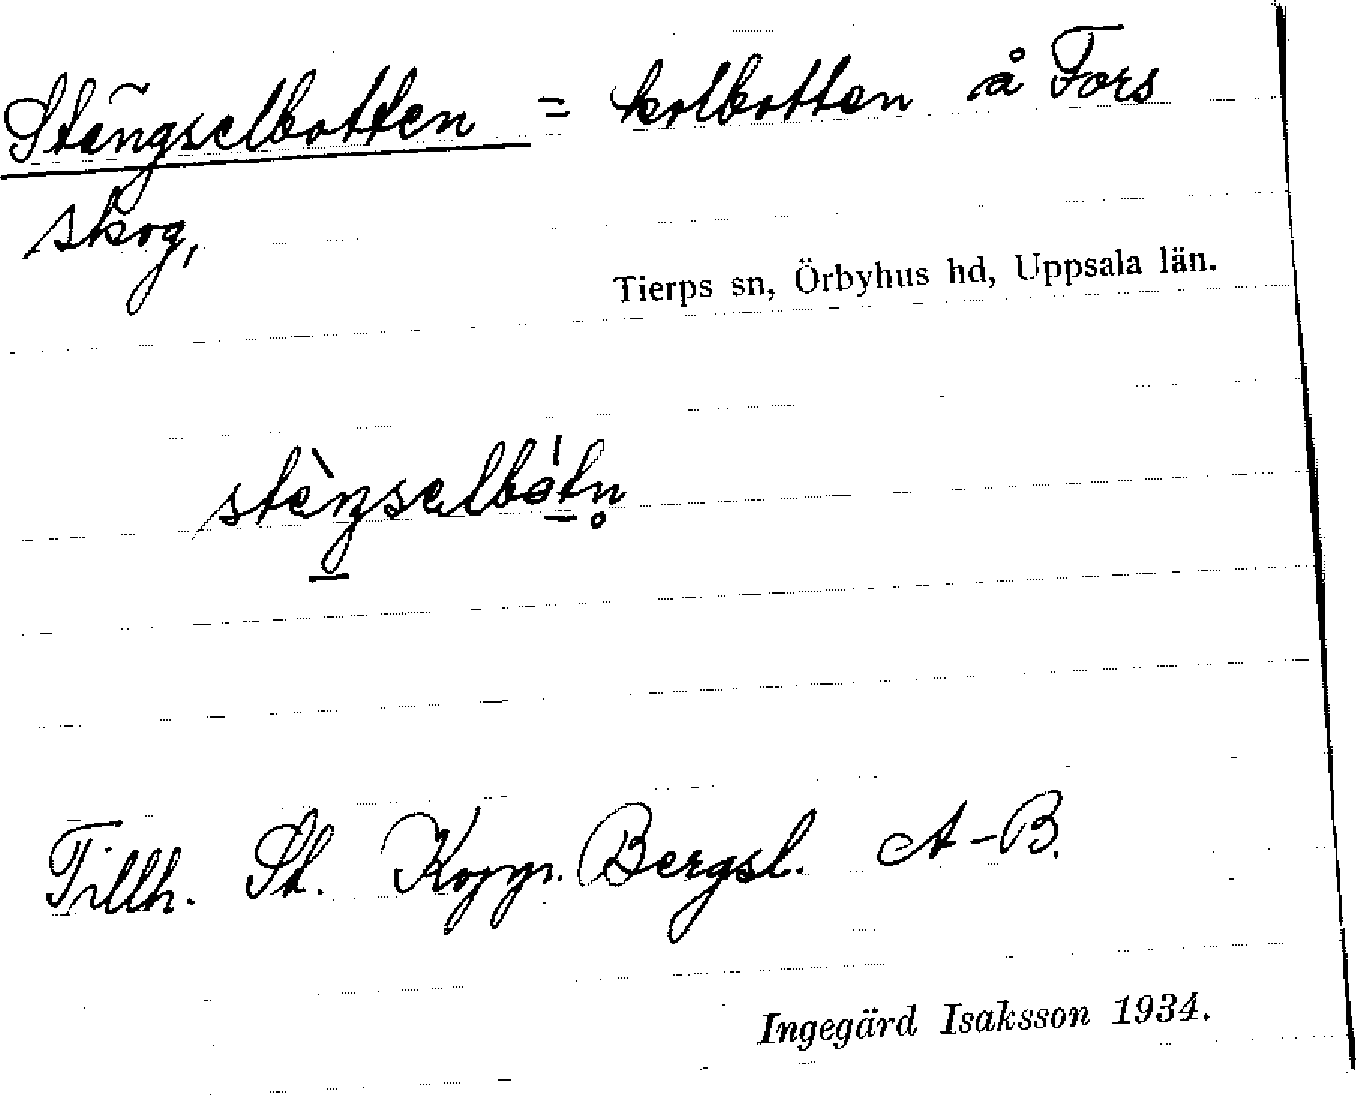 Stängselbotten = kolbotten å Fors
skog,
Tierps sn, Örbyhus hd, Uppsala län.
Tillh. St. Koppr. Bergsl. A-B.
Ingegärd Isaksson 1934.